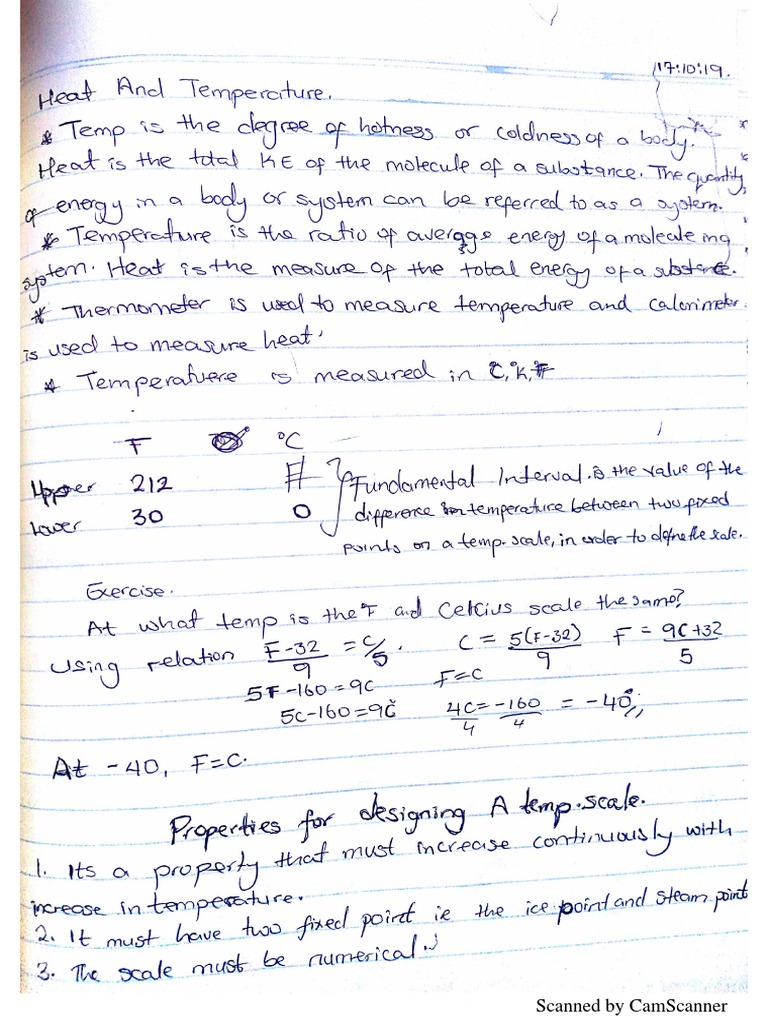 17:10:19.
Heat And Temperature.
* Temp is the degree of hotness or coldness of a body.
Heat is the total KE of the molecule of a substance. The quantity
of energy in a body or system can be referred to as a system.
* Temperature is the ratio of average energy of a molecule ing
system. Heat is the measure of the total energy of a substance.
* Thermometer is used to measure temperature and calorimeter
is used to measure heat.
* Temperatuere is measured in °C, °K, °F
F °C
Upper 212 Fundamental Interval. is the value of the
Lower 30 0 difference in temperature between two fixed
points on a temp. scale, in order to define the scale.
Exercise.
At what temp is the °F and Celcius scale the same?
Using relation F-32/9 = C/5. C = 5(F-32)/9 F = 9C+32/5
5F-160=9C F=C
5C-160=9C 4C/4 = -160/4 = -40°,,
At -40, F=C.
Properties for designing A temp. scale.
1. Its a property that must increase continuously with
increase in temperature.
2. It must have two fixed point ie the ice point and steam point
3. The scale must be numerical.
Scanned by CamScanner